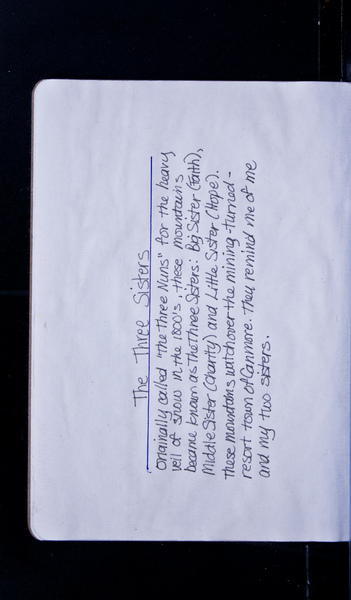 The Three Sisters
originally called "the Three Nuns" for the heavy
veil of snow in the 1800's, these mountains
became known as The Three Sisters: Big Sister (Faith),
Middle Sister (Charity) and Little Sister (Hope).
These mountains watch over the mining-turned-
resort town of Canmore. They remind me of me
and my two sisters.